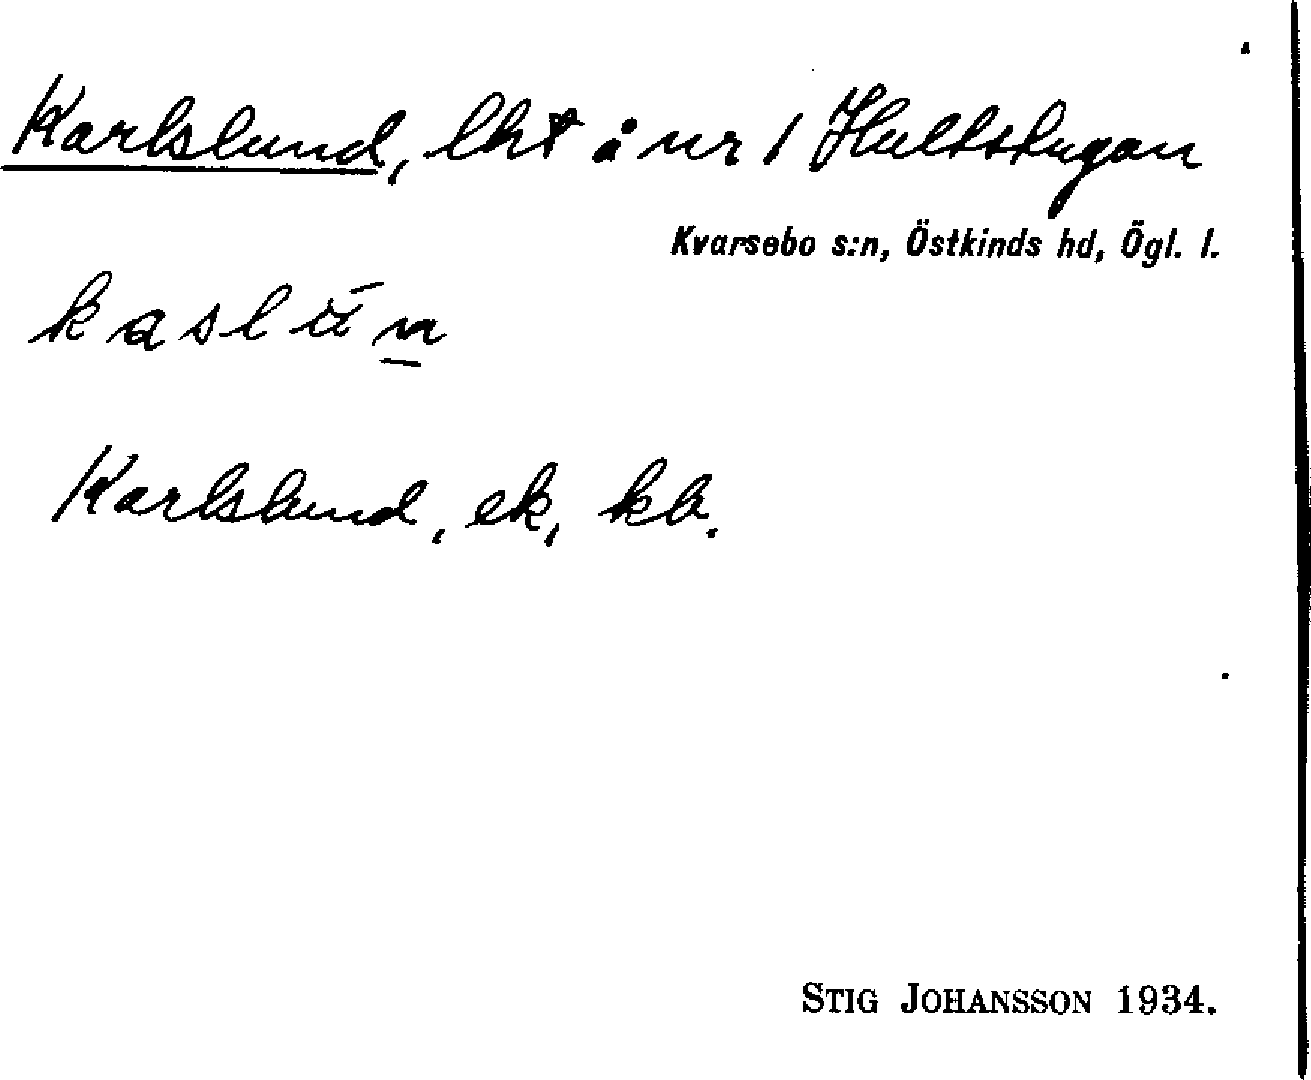 Karlslund, lht å nr 1 Hultstugan
Kvarsebo s:n, Östkinds hd, Ögl. l.
Karlslund, ek, kb.
STIG JOHANSSON 1934.